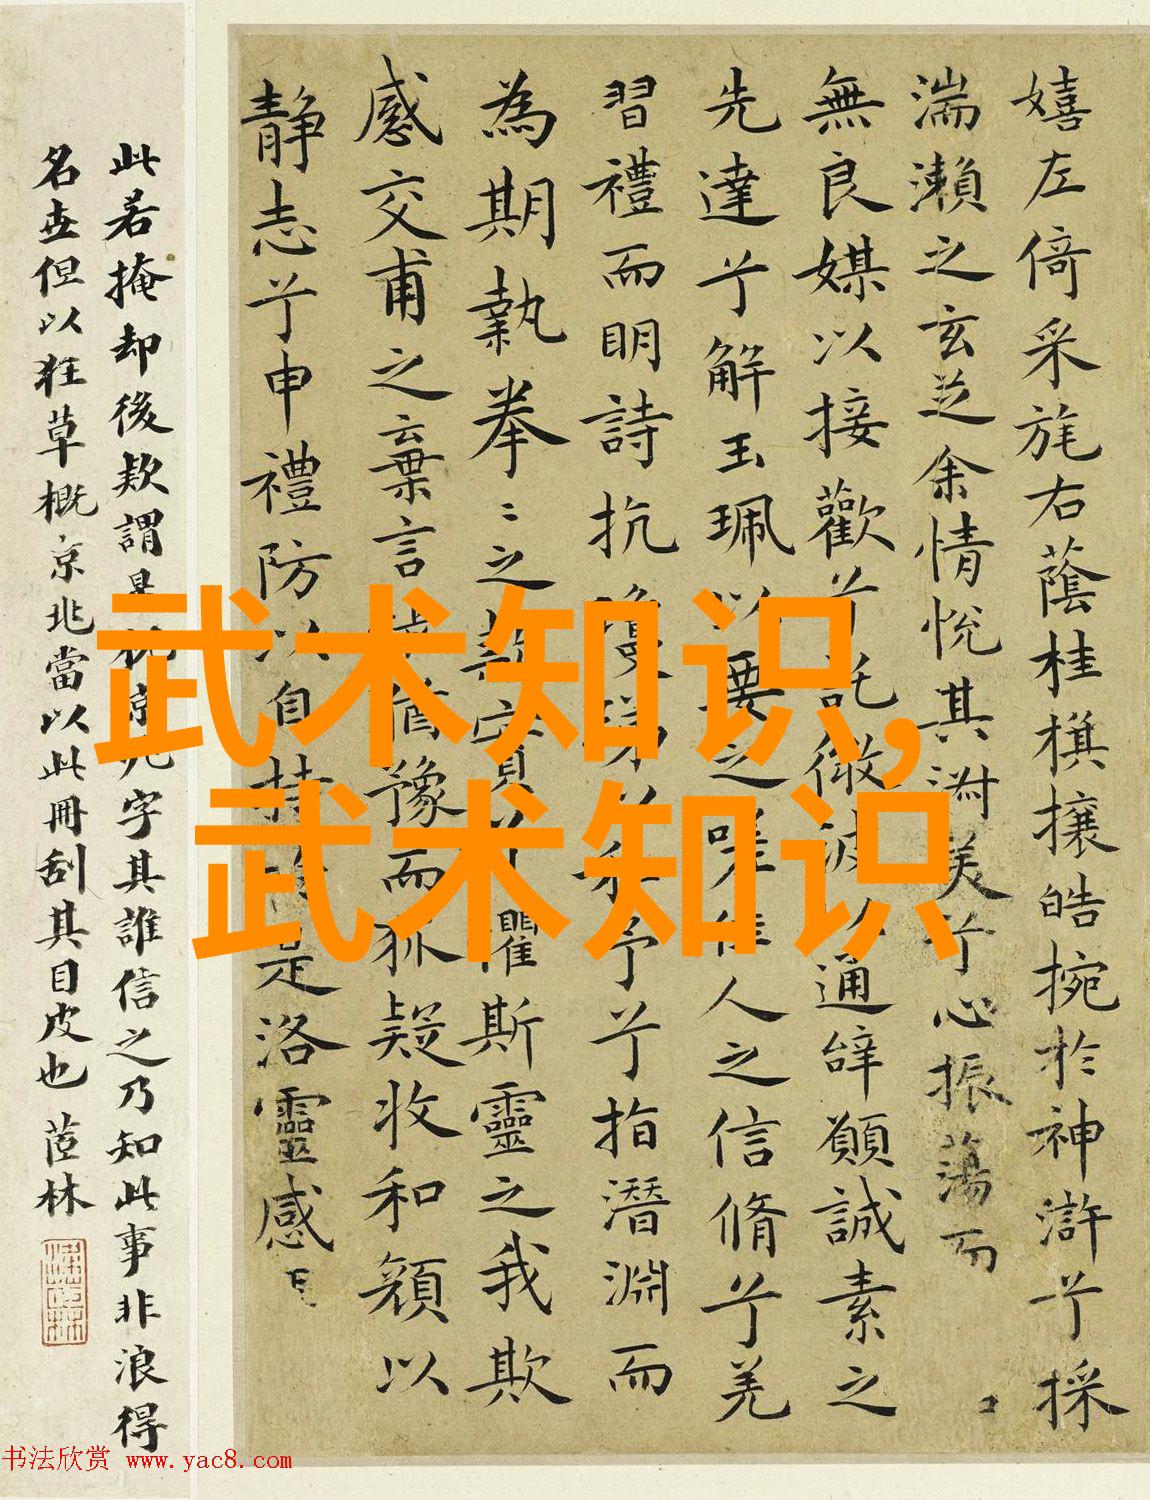 嬉左倚采旄右蔭桂旗攘皓捥於神滸兮採
湍瀨之玄芝余情悅其淑美兮心振蕩而
無良媒以接歡兮託微波以通辭願誠素之
先達兮解玉珮以要之嗟佳人之信脩兮羌
習禮而明詩抗瓊珶和予兮指潛淵而
為期執拳〻之款實兮懼斯靈之我欺
感交甫之棄言悵猶豫而狐疑收和顏以
静志兮申禮防以自持於是洛靈感
此若掩却後欵謂是京兆字其誰信之乃知此事非浪得
名世但以狂草概京兆當以此冊刮其目皮也 茝林
武术知识,
武术知识
书法欣赏 www.yac8.com